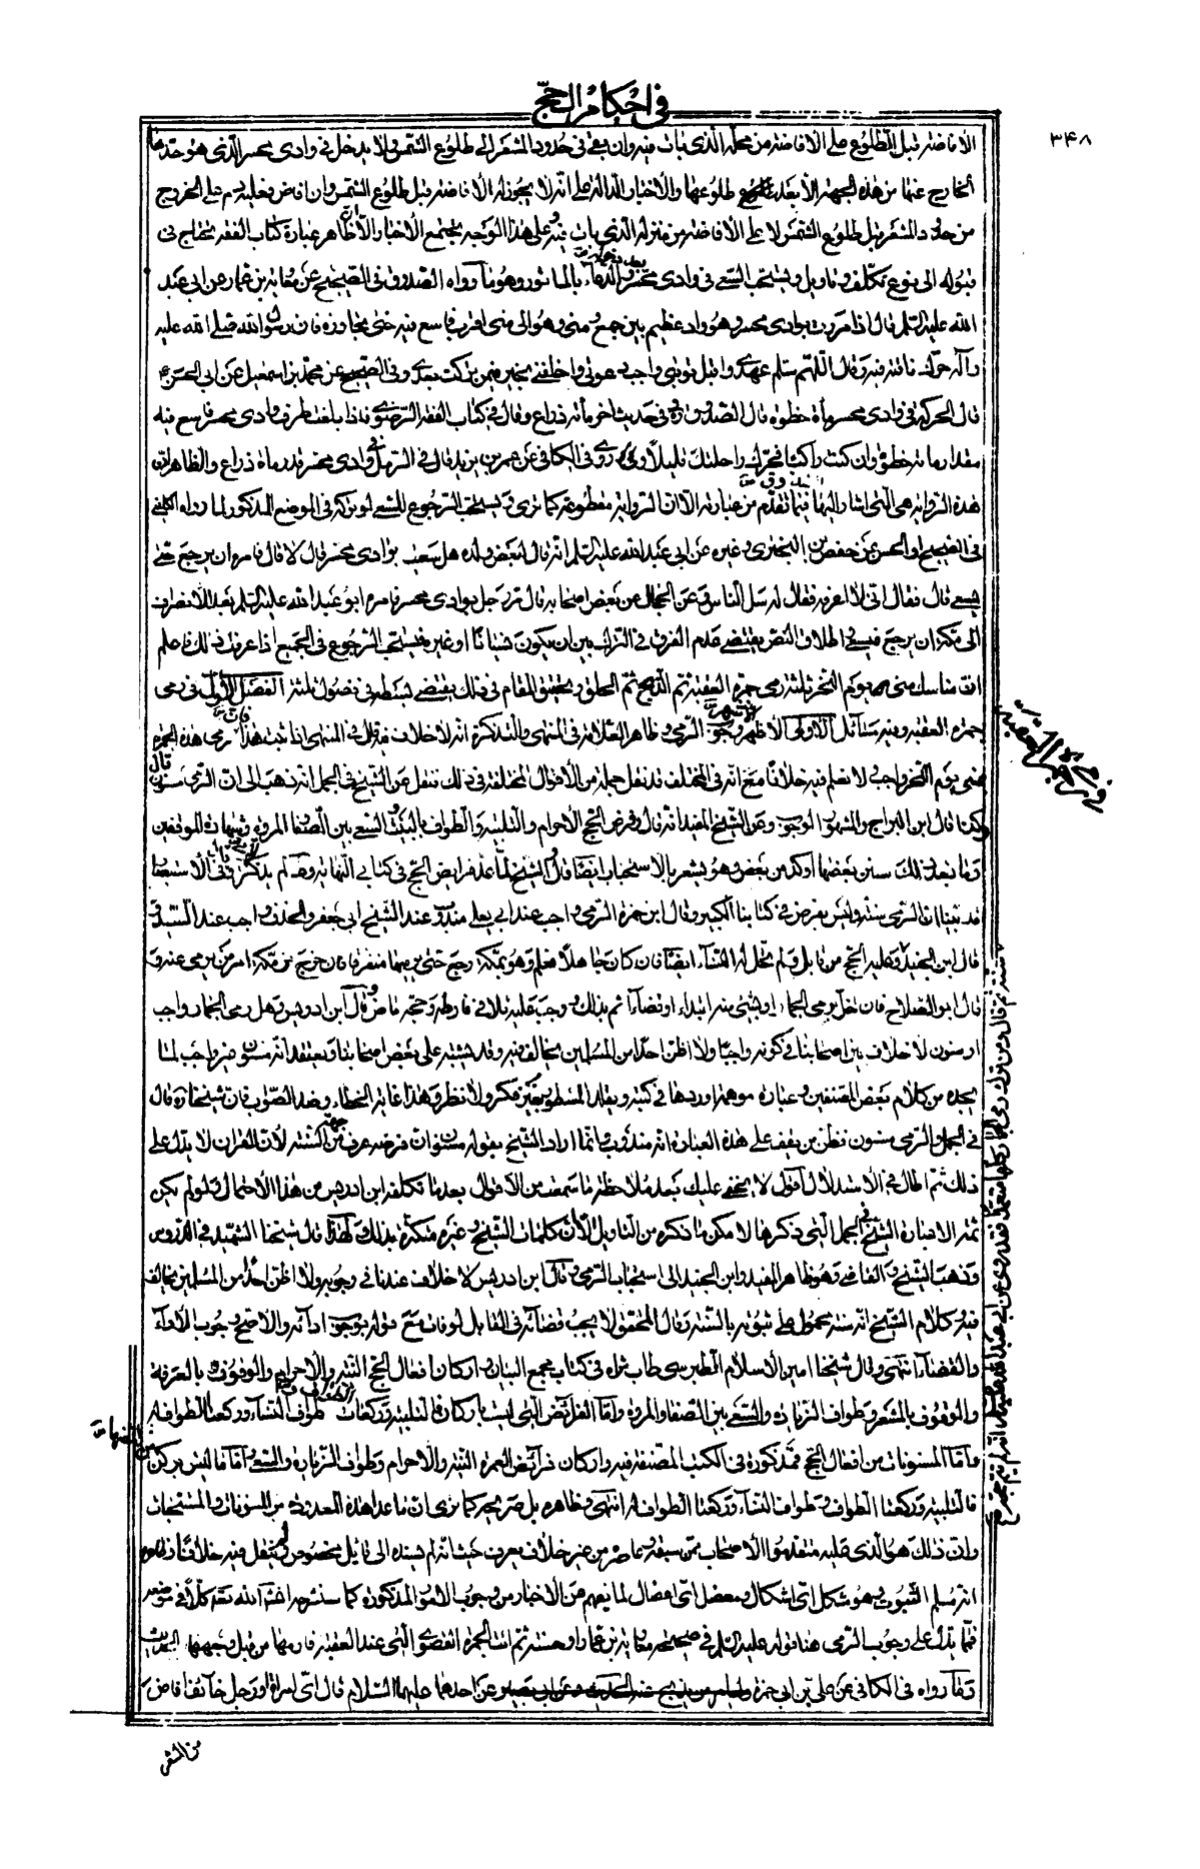 في احكام الحج
٣٤٨
الافاضة قبل الطلوع على الافاضة من محله الذي بات فيه وان بقي في حدود المشعر الى طلوع الشمس ولا يدخل في وادي محسر الذي هو حدها
الخارج عنها من هذه الجهة الا بعد طلوعها والاخبار الدالة على انه لا يجوز له الافاضة قبل طلوع الشمس وان افاض فعليه دم على الخروج
من حدود المشعر قبل طلوع الشمس لا على الافاضة من منزله الذي بات فيه وعلى هذا الوجه يجتمع الاخبار الا ان ظاهر عبارة كتاب الفقه يحتاج في
قبوله الى نوع تكلف وتاويل ويستحب السعي في وادي محسر والدعاء بالماثور وهو ما رواه الصدوق في الصحيح عن معاوية بن عمار عن ابي عبد
الله عليه السلم قال اذا مررت بوادي محسر وهو واد عظيم بين جمع ومنى وهو الى منى اقرب فاسع فيه حتى تجاوزه فان رسول الله صلى الله عليه
وآله حرك ناقته فيه وقال اللهم سلم عهدي واقبل توبتي واجب دعوتي واخلفني بخير فيمن تركت بعدي وفي الصحيح عن محمد بن اسمعيل عن ابي الحسن
قال الحركة في وادي محسر مأة خطوة قال الصدوق وفي حديث اخر مأة ذراع وقال في كتاب الفقه الرضوي فاذا بلغت طرف وادي محسر فاسع فيه
مقدار مأة خطوة وان كنت راكبا فحرك راحلتك قليلا وروى في الكافي عن عمر بن يزيد قال في الرمل في وادي محسر قدر مأة ذراع والظاهر ان
هذه الرواية هي التي اشار اليها فيما تقدم من عبارته الا ان الرواية مقطوعة كما ترى ويستحب الرجوع للسعي لو تركه في الموضع المذكور لما رواه الكليني
في الصحيح او الحسن عن حفص بن البختري وغيره عن ابي عبد الله عليه السلم انه قال لبعض ولده هل سعيت بوادي محسر قال لا قال فامره ان يرجع حتى
يسعى قال فقال اني لا اعرفه فقال له سل الناس وعن الحجال عن بعض اصحابه قال مر رجل بوادي محسر فامره ابو عبد الله عليه السلم بعد الانصراف
الى مكة ان يرجع فيسعى اطلاق النص يقتضي عدم الفرق في الترك بين ان يكون نسيانا او غيره فيستحب الرجوع في الجميع اذا عرفت ذلك فاعلم
ان مناسك منى يوم النحر ثلثة رمي جمرة العقبة ثم الذبح ثم الحلق وتحقيق المقام في ذلك يقتضي بسطه في فصول ثلثة الفصل الاول في رمي
جمرة العقبة وفيه مسائل الاولى الاظهر الاشهر وجوب الرمي وظاهر العلامة في المنتهى والتذكرة انه لا خلاف فيه قال في المنتهى اذا ثبت هذا فان رمي هذه الجمرة
بمنى يوم النحر واجب ولا نعلم فيه خلافا مع انه في المختلف قد نقل جملة من الاقوال المختلفة في ذلك فنقل عن الشيخ في الجمل انه ذهب الى ان الرمي مسنون قال
وكذا قال ابن البراج والمشهور الوجوب وعن الشيخ المفيد انه قال وفرض الحج الاحرام والتلبية والطواف بالبيت والسعي بين الصفا والمروة وشهادة الموقفين
وما بعد ذلك سنن بعضها اوكد من بعض وهو يشعر بالاستحباب ايضا قال والشيخ لما عد فرايض الحج في كتابي النهاية ولم يذكر الرمي قال وفي الاستبصار
قد بينا ان الرمي سنة وليس بفرض في كتابنا الكبير وقال ابن حمزة الرمي واجب عند ابي يعلى مندوب عند الشيخ ابي جعفر والحلق واجب عند السيد و
قال ابن الجنيد وعليه الحج من قابل ولم تحل له النساء ايضا فان كان جاهلا فعلم وهو بمكة رجع حتى يرميها متفرقا فان خرج من مكة امر من يرمي عنه و
قال ابو الصلاح فان اخل برمي الجمار او بشيء منه ابتداء او قضاء اثم بذلك ووجب عليه تلافي فارطه وحجه ماض وقال ابن ادريس وهل رمي الجمار واجب
او مسنون لا خلاف بين اصحابنا في كونه واجبا ولا اظن احدا من المسلمين يخالف فيه وقد يشتبه على بعض اصحابنا ويعتقد انه مسنون غير واجب لما
يجده من كلام بعض المصنفين وعبارة موهمة اوردها في كتبه ويقلد المسطور بغير فكر ولا نظر وهذا غاية الخطاء وضد الصواب فان شيخنا ره قال
في الجمل والرمي مسنون فظن من يقف على هذه العبارة انه مندوب وانما اراد الشيخ بقوله مسنون ان فرضه عرف من جهة السنة لان القران لا يدل على
ذلك ثم اطال في الاستدلال اقول لا يخفى عليك بعد ملاحظة ما سمعت من الاقوال بعد ما تكلفه ابن ادريس من هذا الاحتمال ولو لم يكن
ثمة الا عبارة الشيخ في الجمل التي ذكرها لامكن ما ذكره من التاويل الا ان كلمات الشيخ وغيره متكثرة بذلك ولهذا قال شيخنا الشهيد في الدروس
وذهب الشيخ والقاضي وهو ظاهر المفيد وابن الجنيد الى استحباب الرمي وقال ابن ادريس لا خلاف عندنا في وجوبه ولا اظن احدا من المسلمين يخالف
فيه وكلام الشيخ انه سنة محمول على ثبوته بالسنة وقال المحقق لا يجب قضائه في القابل لو فات مع قوله بوجوب ادائه والاصح وجوب الاداء
والقضاء انتهى وقال شيخنا امين الاسلام الطبرسي طاب ثراه في كتاب مجمع البيان واركان افعال الحج النية والاحرام والوقوف بالعرفة
والوقوف بالمشعر وطواف الزيارة والسعي بين الصفا والمروة واما الفرائض التي ليست باركان فالتلبية وركعات الطواف وطواف النساء وركعتا الطواف له
واما المسنونات من افعال الحج فمذكورة في الكتب المصنفة فيه واركان فرائض العمرة النية والاحرام وطواف الزيارة والسعي واما ما ليس بركن من فرائضها
فالتلبية وركعتا الطواف وطواف النساء وركعتا الطواف له انتهى وظاهره بل صريحه كما ترى ان ما عدا هذه المعدودات من المسنونات والمستحبات
وان ذلك هو الذي عليه متفقهوا الاصحاب ممن سبقه وعاصره من غير خلاف يعرف حيث انه لم يسنده الى قايل بخصوصه ولم ينقل فيه خلافا
انه مسلم الثبوت وهو مشكل اي اشكال ومعضل اي اعضال لما يفهم من الاخبار من وجوب الامور المذكورة كما سنشرحه انشاء الله تعه كلا في موضعه
فمما يدل على وجوب الرمي هنا قوله عليه السلم في صحيحة معاوية بن عمار او حسنته ثم ائت الجمرة القصوى التي عند العقبة فارمها من قبل وجهها الحديث
وما رواه في الكافي عن علي بن ابي حمزة عن احدهما عليهما السلام قال اي امراة او رجل خائف افاض
من المشعر
في رمي جمرة العقبة
سنة ثم قال ومن ترك رمي الجمار كلها متعمدا فقد روى عن ابي عبد الله عليه السلم انه لم يتم حجه